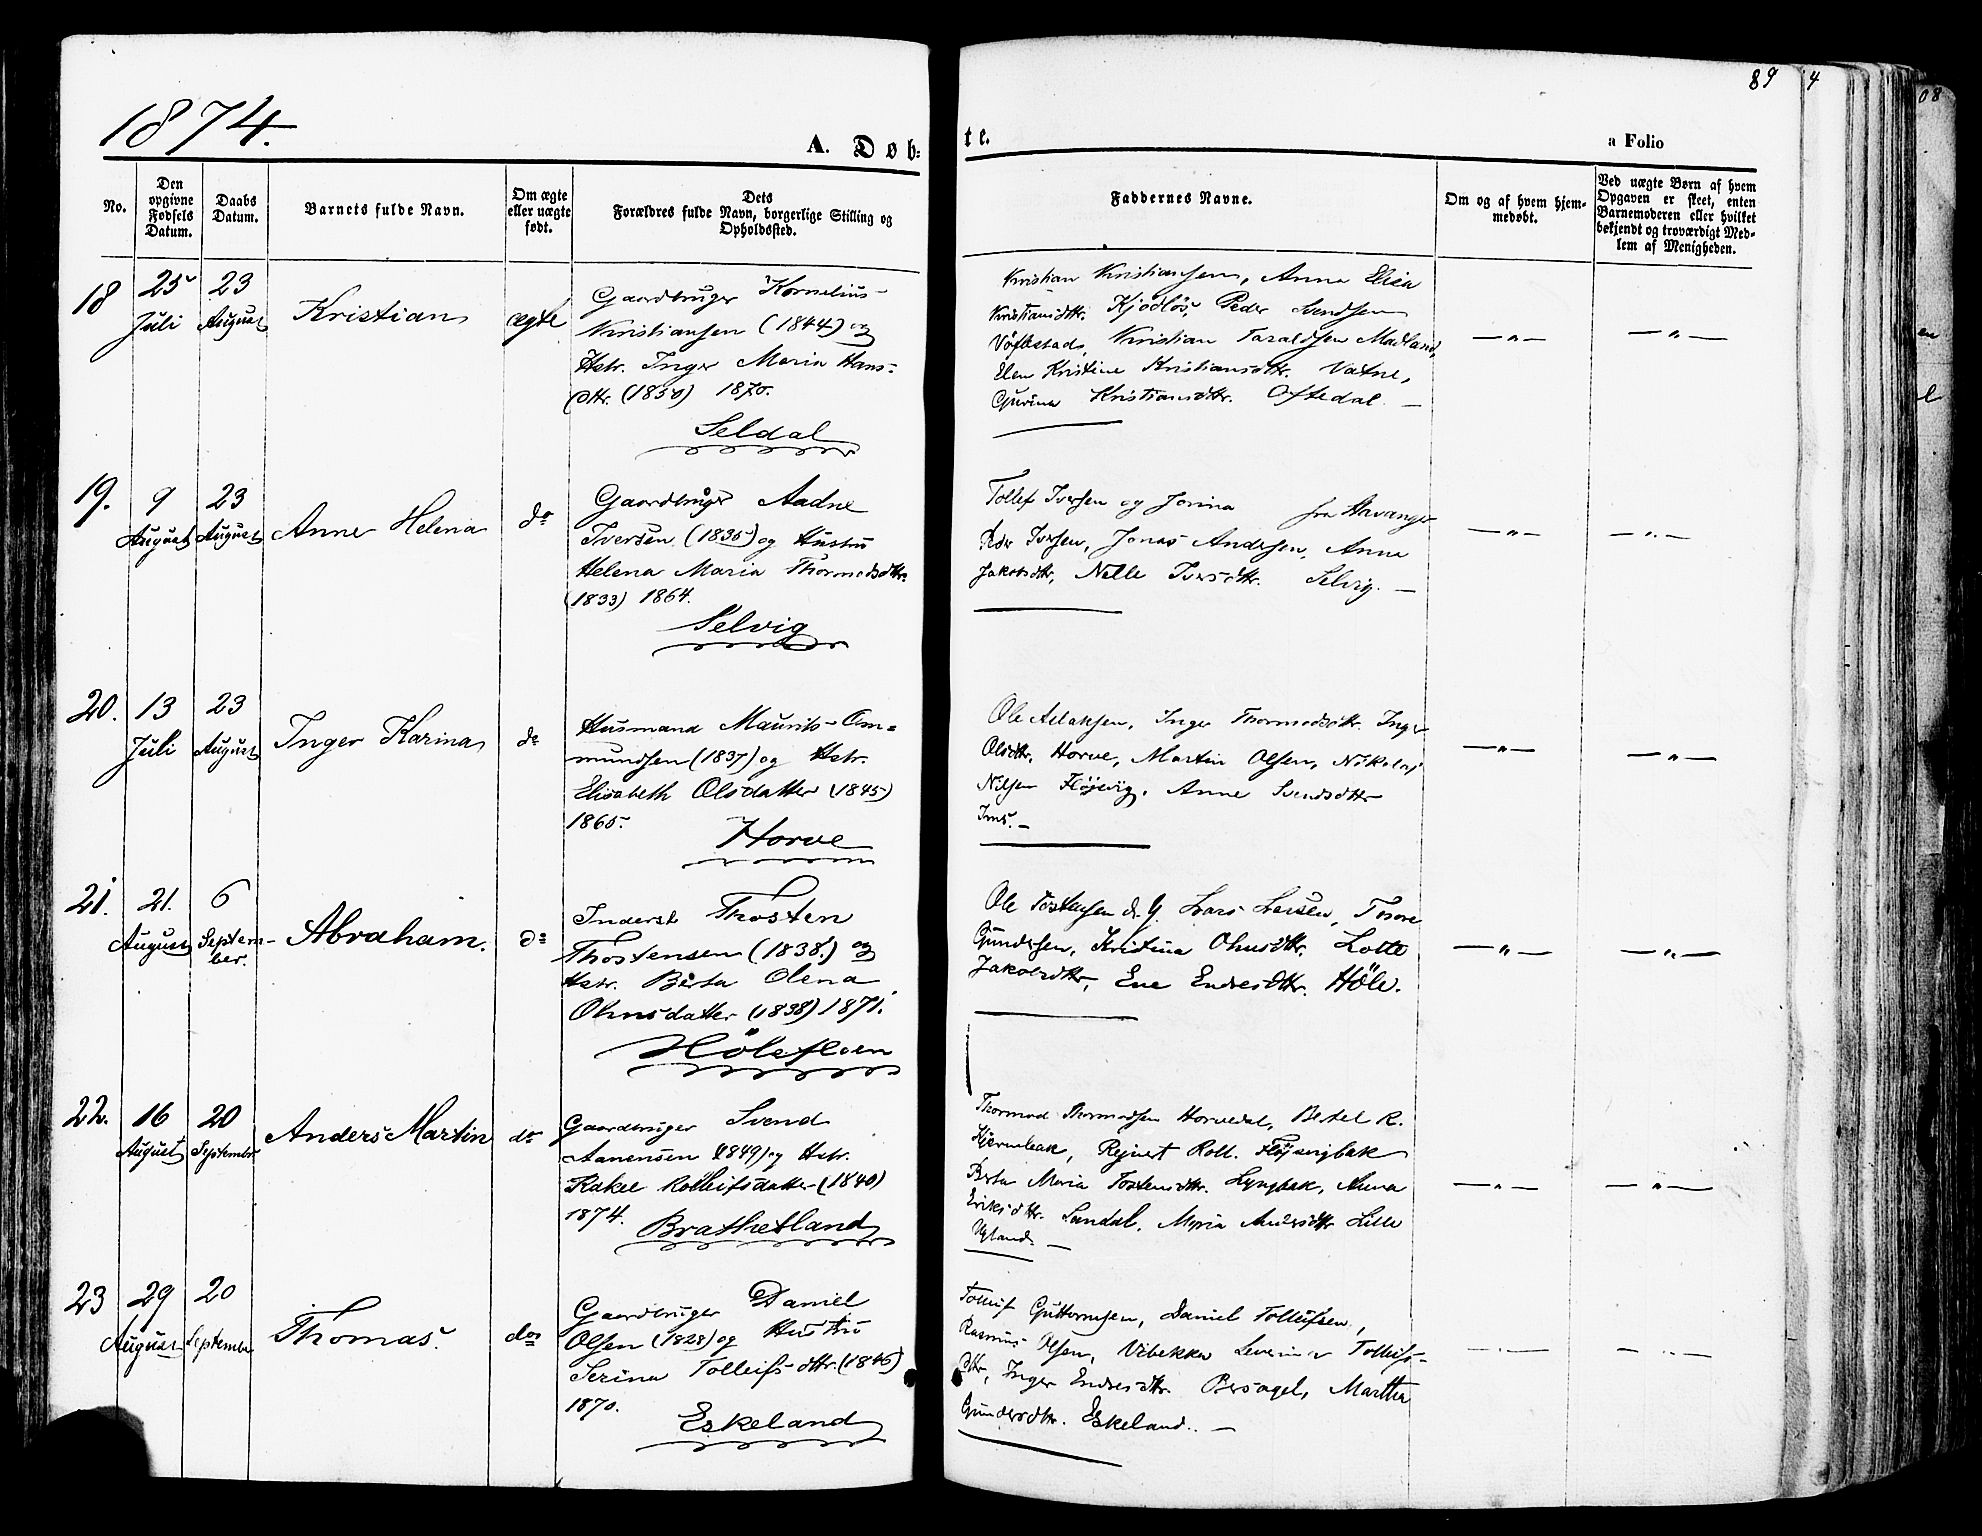 1874.
A. Døb-
te.
a Folio
89
4
08
No.
Den opgivne Fødsels Datum.
Daabs Datum.
Barnets fulde Navn.
Om ægte eller uægte født.
Dets Forældres fulde Navn, borgerlige Stilling og Opholdssted.
Faddernes Navne.
Om og af hvem hjemmedøbt.
Ved uægte Børn af hvem Opgaven er skeet, enten Barnemoderen eller hvilket bekjendt og troværdigt Medlem af Menigheden.
18
25 Juli
23 August
Kristian
ægte
Gaardbruger Kornelius
Kristiansen (1844) og
Hstr. Inger Maria Hans-
dttr. (1850) 1870.
Seldal
Kristian Kristiansen, Anna Elisa
Kristiansdttr. Kjodlös, Peder Svendsen
Kristian Taraldsen Madland,
Elen Kristine Kristiansdttr. Vatne,
Gurina Kristiansdttr. Oftedal. —
— " —
— " —
19.
9 August
23 August
Anne Helena
do
Gaardbruger Aadne
Iversen (1835) og Hustru
Helena Maria Thormodsdttr.
(1833) 1864.
Selvig
Tollef Iversen og Jorina fra Stavanger
Peder Iversen, Jonas Andersen, Anna
Jakobsdttr, Nelle Iversdttr. Selvig. —
— " —
— " —
20.
13 Juli
23 August
Inger Karina
do
Husmand Maurits Om-
mundsen (1837) og Hstr.
Elisabeth Olsdatter (1845)
1865.
Horve
Ole Aslaksen, Inger Thormodsdttr. Inger
Olsdttr. Horve, Martin Olsen, Nikolaj
Nilsen Fløjsvig, Anne Svendsdttr
Ims. —
— " —
— " —
21.
21. August
6 September.
Abraham.
do
Inderst Thosten
Thostensen (1838.) og
Hstr. Berta Olena
Ohnsdatter (1838) 1871.
Hölefloen
Ole Tostensen d. y. Lars Larsen, Tore
Gundersen, Kristina Ohnsdttr. Lotte
Jakobsdttr, Ene Endresdttr. Höle.
— " —
— " —
22.
16 August
20 September
Anders Martin
do
Gaardbruger Svend
Aanensen (1849) og Hstr.
Rakel Rolleifsdatter (1840)
1874.
Brathetland
Thormod Thormodsen Horvedal, Bertel R.
Kjerrebak, Rejnert Roll. Fløjsvigbak
Berta Maria Tostensdttr. Lyngbak, Anna
Eriksdttr. Sandal. Maria Andersdttr. Lille
Hetland. —
— " —
— " —
23
29 August
20 September
Thomas.
do
Gaardbruger Daniel
Olsen (1828) og Hustru
Serina Tolleifsdttr. (1846)
1870.
Eskeland
Tolleif Guttormsen, Daniel Tolleifsen,
Rasmus Olsen, Vibekka Leverina Tolleifs-
dttr, Inger Endresdttr. Bersagel, Martha
Gundersdttr. Eskeland. —
— " —
— " —